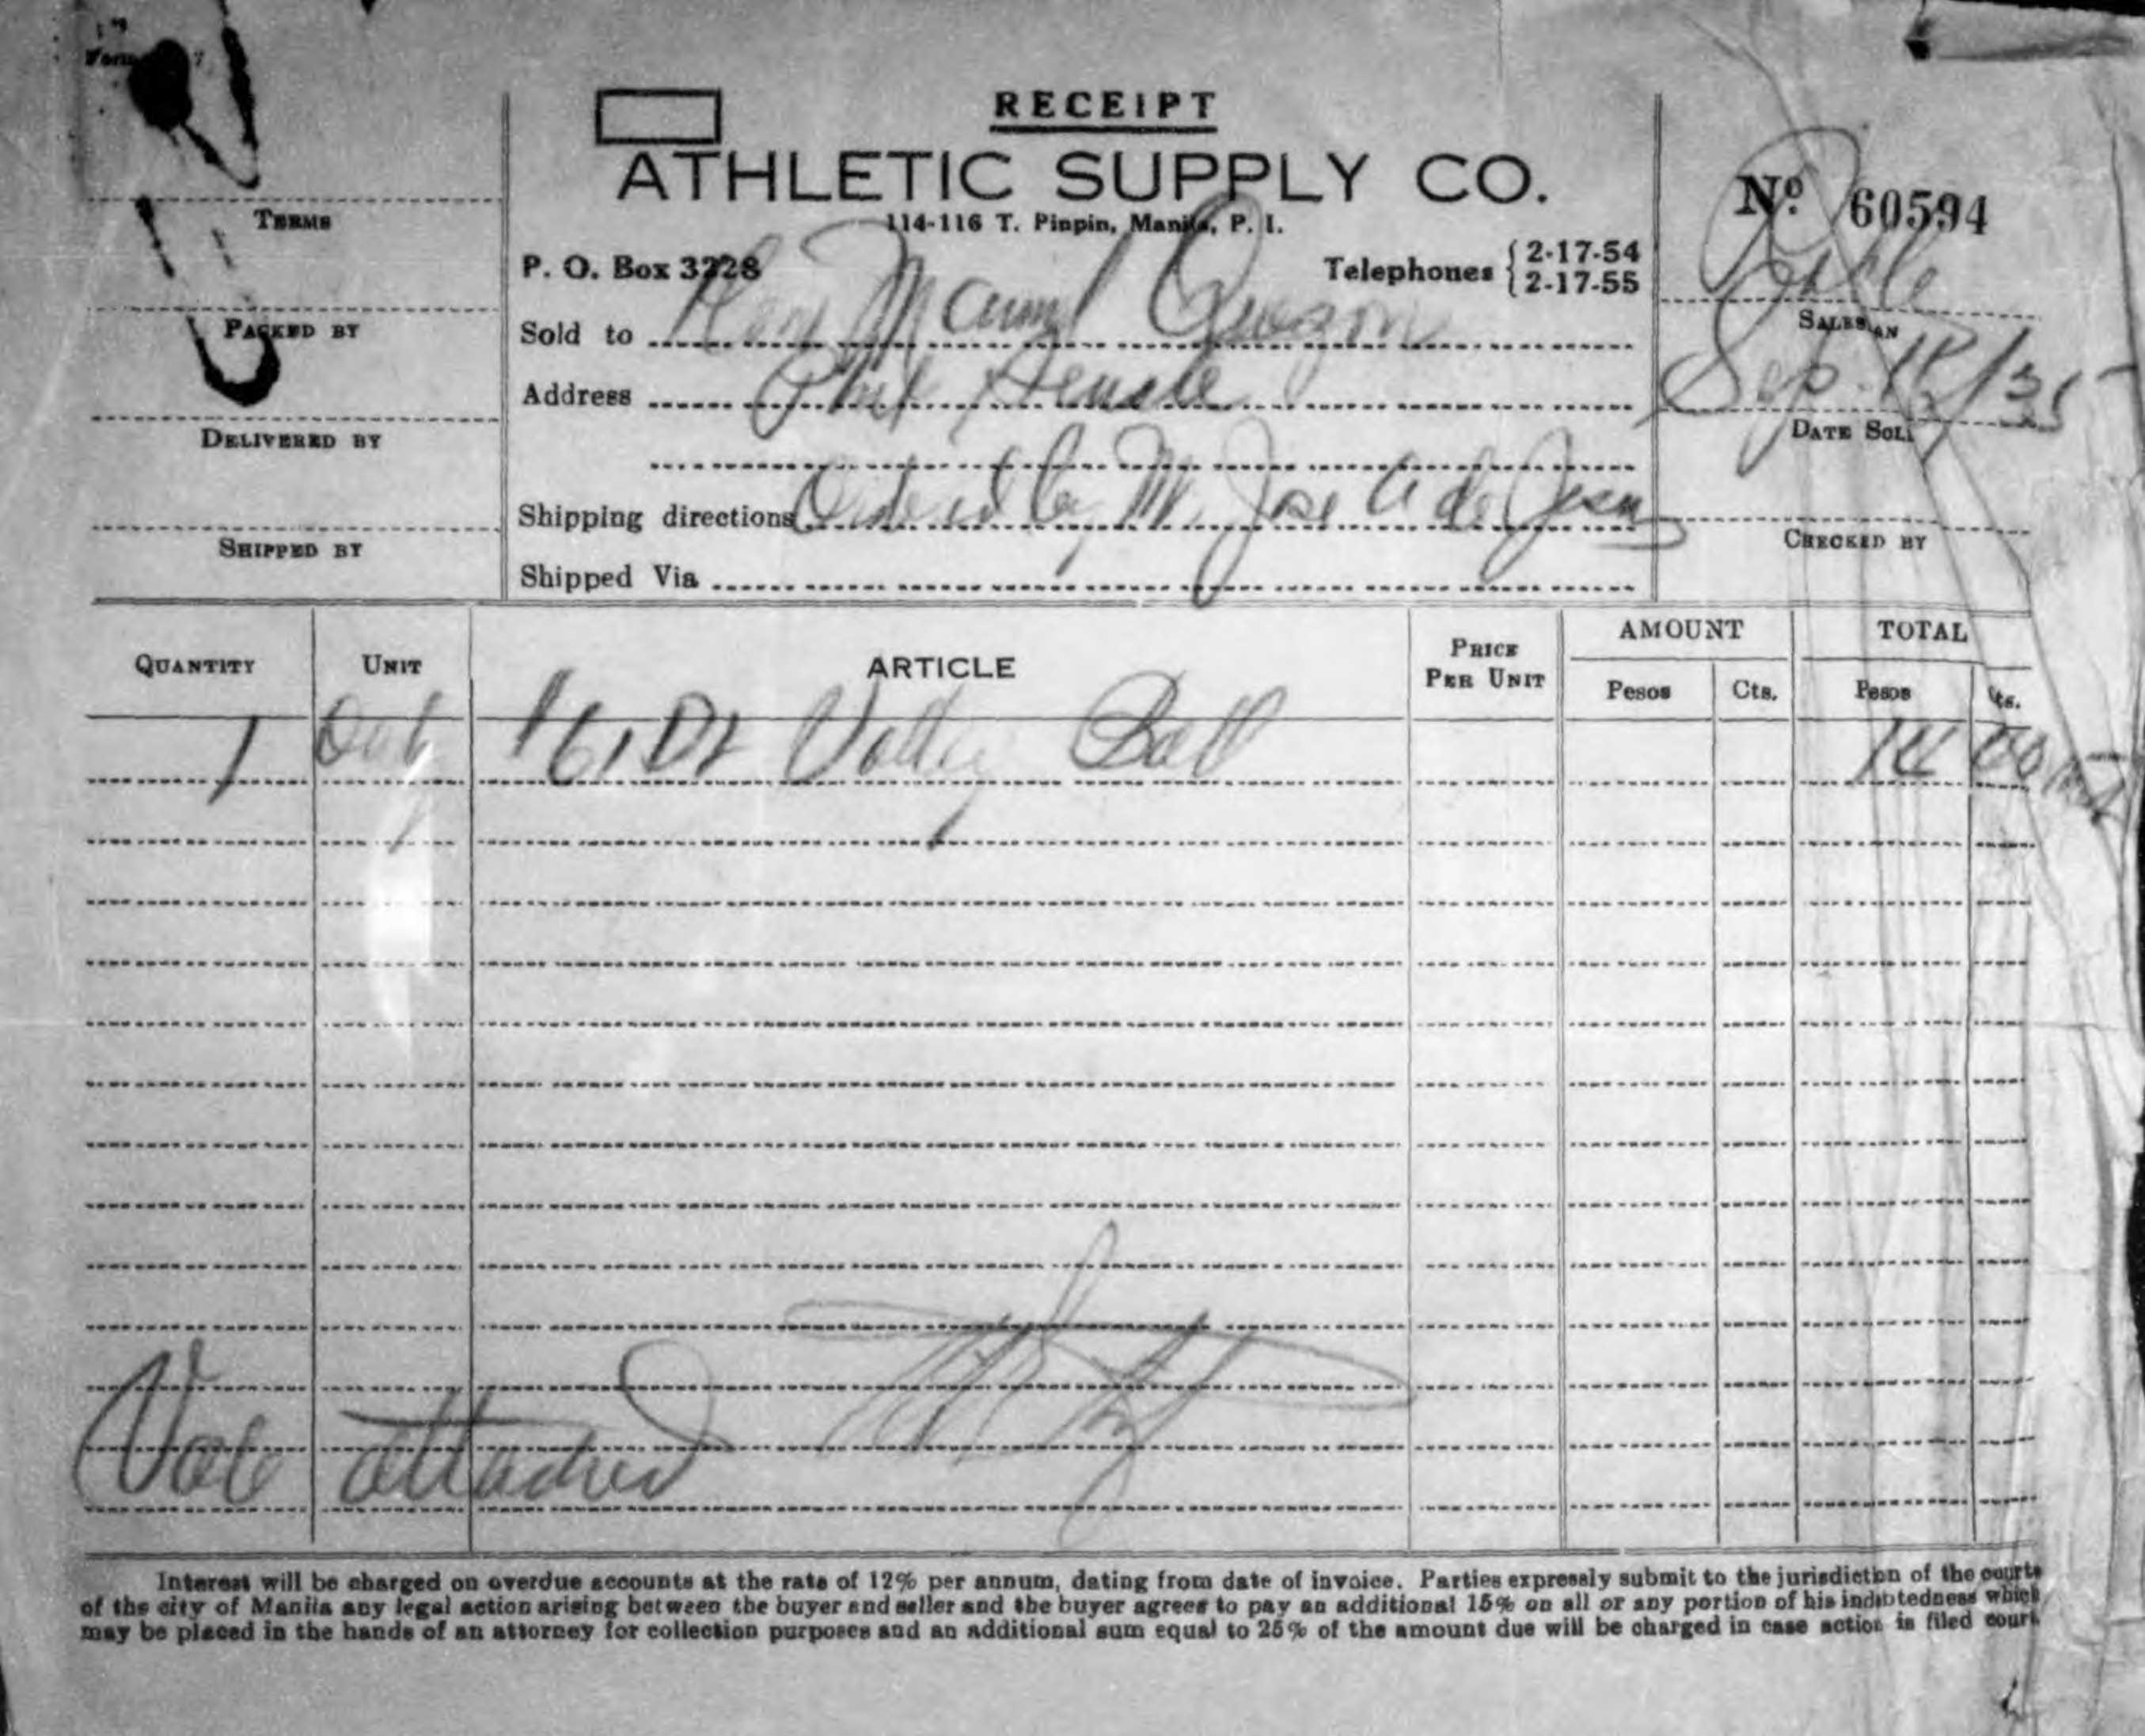 RECEIPT
ATHLETIC SUPPLY CO.
114-116 T. Pinpin, Manila, P. I.
P. O. Box 3228
Telephones { 2-17-54
2-17-55
Nº. 60594
Sold to Hon Manuel Quezon
Address Phil Senate
Shipping directions Ordered by Mr. Jose A de Jesus
Shipped Via
TERMS
PACKED BY
DELIVERED BY
SHIPPED BY
SALESMAN
Sep.
DATE SOLD
CHECKED BY
QUANTITY UNIT ARTICLE PRICE PER UNIT AMOUNT TOTAL
Pesos Cts. Pesos Cts.
1 Only Volley Ball 14 00
Vale attached
Interest will be charged on overdue accounts at the rate of 12% per annum, dating from date of invoice. Parties expressly submit to the jurisdiction of the courts
of the city of Manila any legal action arising between the buyer and seller and the buyer agrees to pay an additional 15% on all or any portion of his indebtedness which
may be placed in the hands of an attorney for collection purposes and an additional sum equal to 25% of the amount due will be charged in case action is filed court